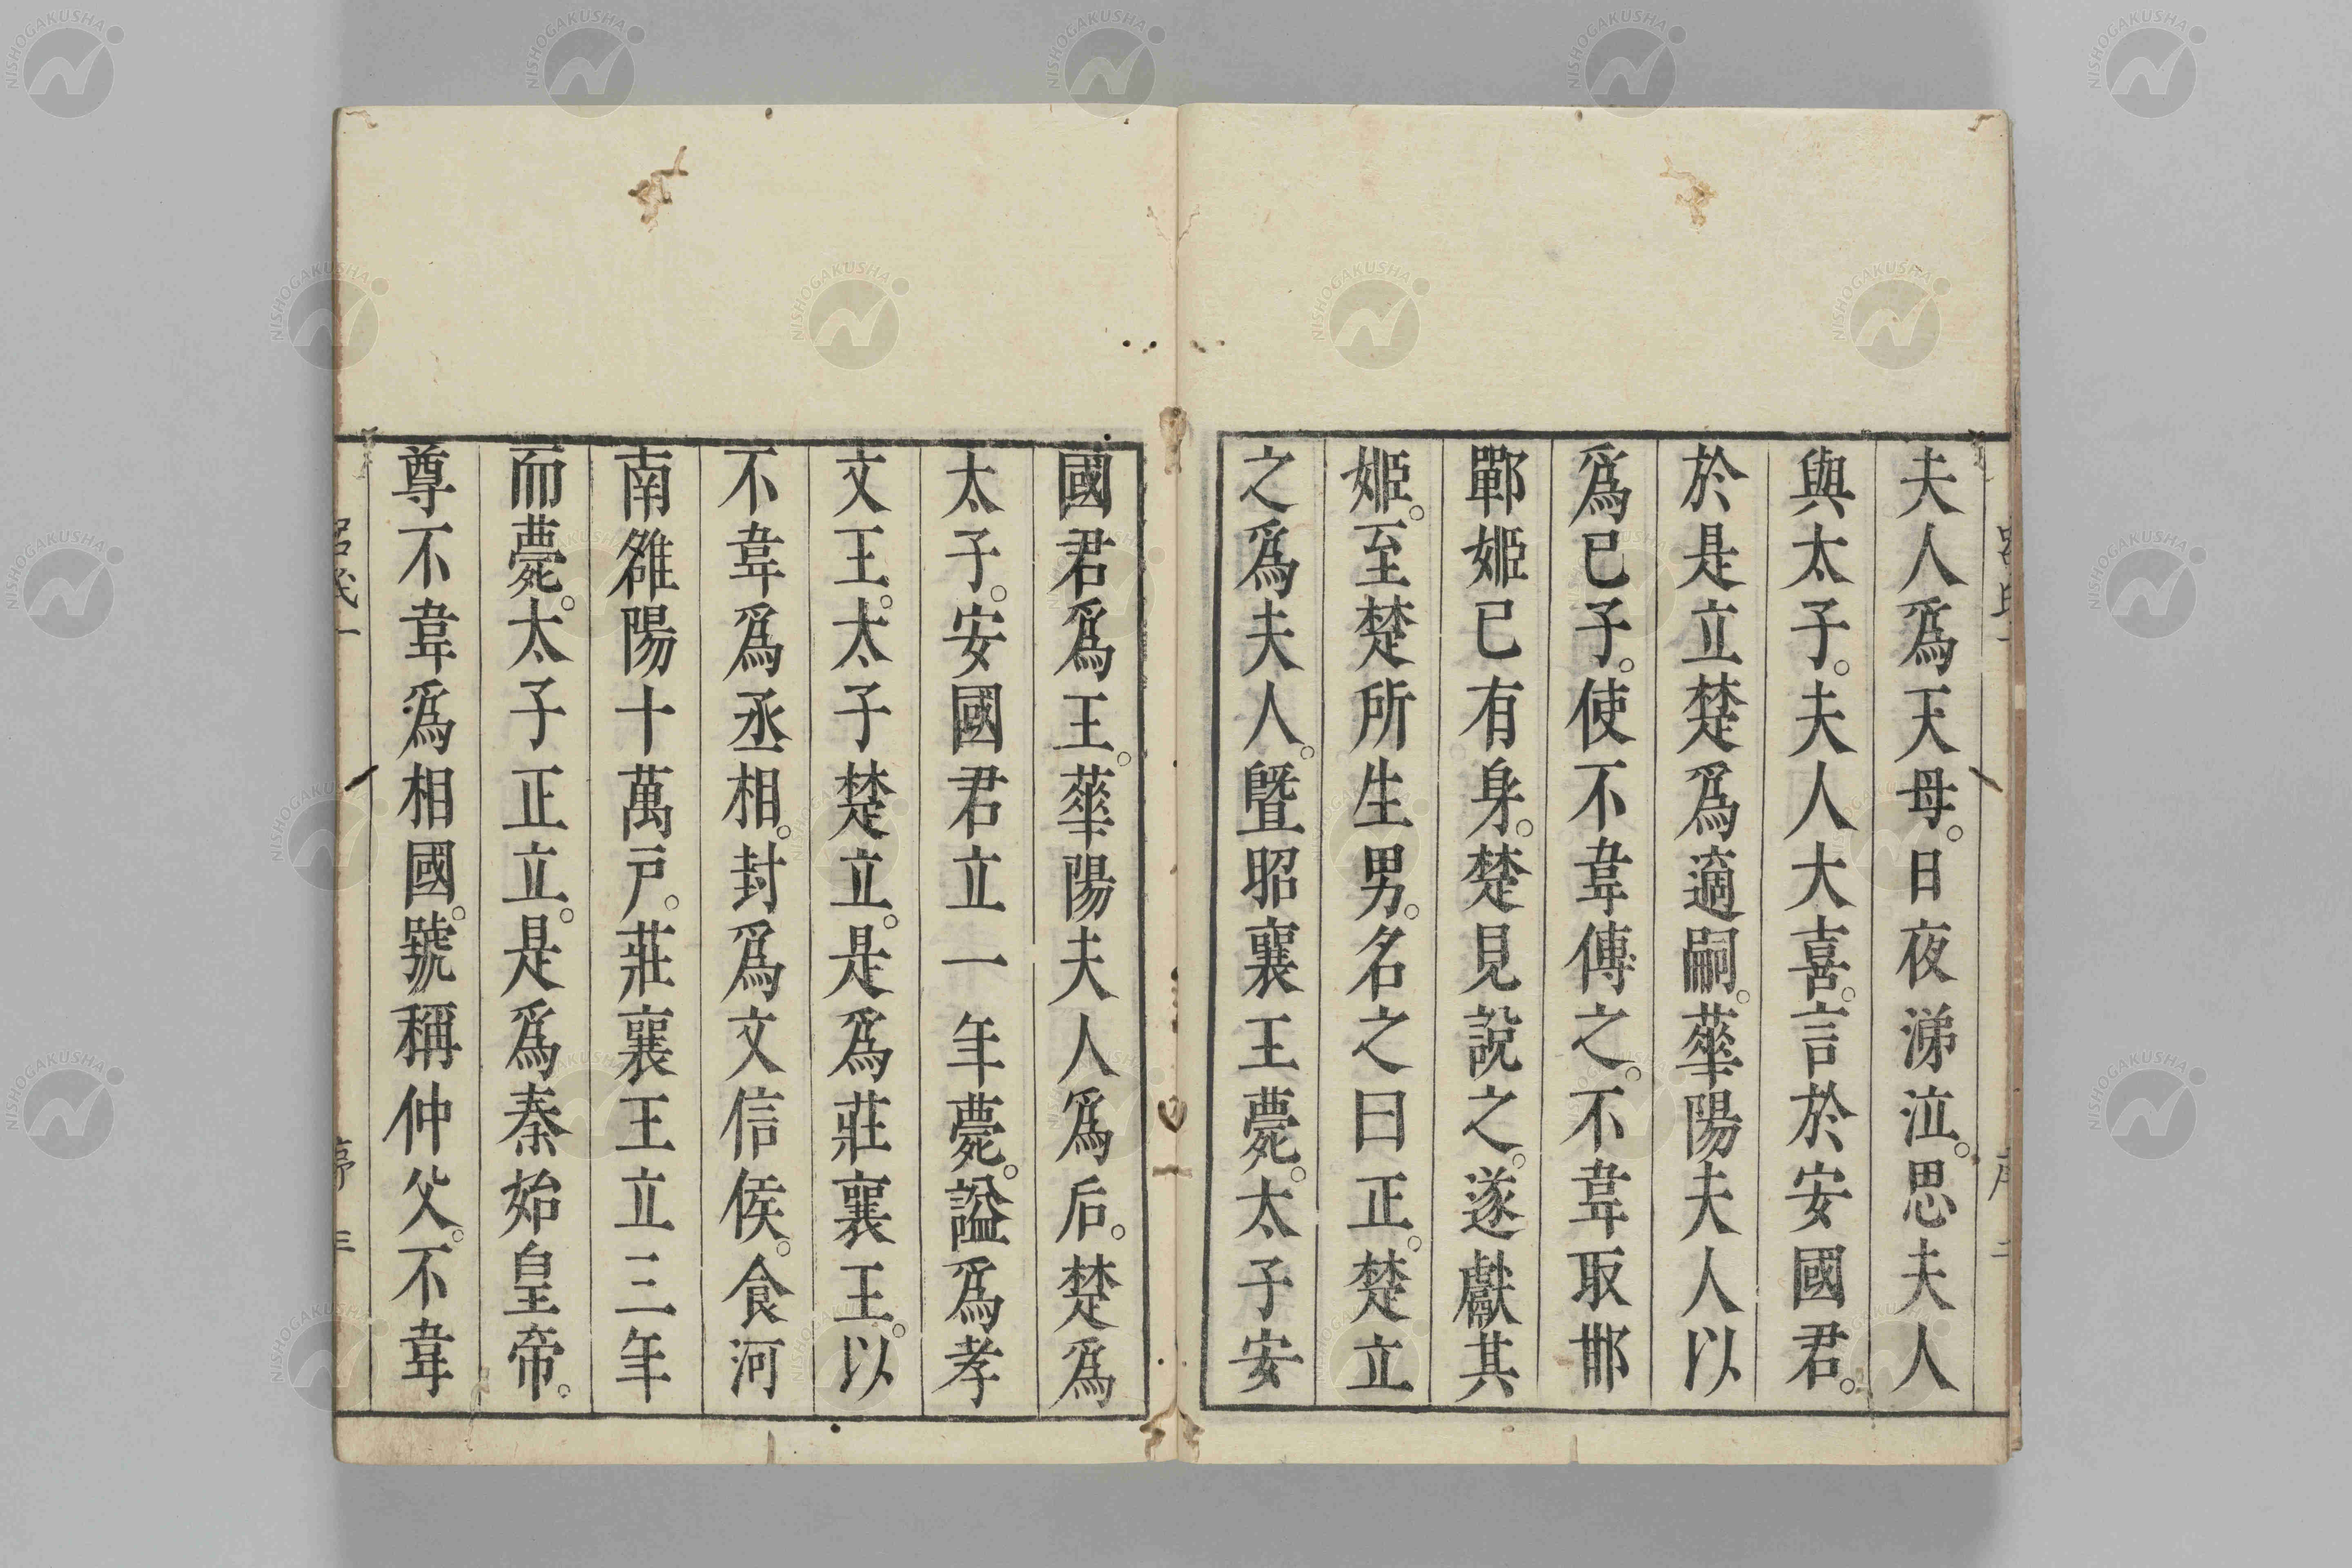 夫人爲天母。日夜涕泣。思夫人
與太子。夫人大喜。言於安國君。
於是立楚爲適嗣。華陽夫人以
爲已子。使不韋傳之。不韋取邯
鄲姬已有身。楚見說之。遂獻其
姬。至楚所生男。名之曰正。楚立
之爲夫人。曁昭襄王薨。太子安
國君爲王。華陽夫人爲后。楚爲
太子。安國君立一年薨。謚爲孝
文王。太子楚立。是爲莊襄王。以
不韋爲丞相。封爲文信侯。食河
南雒陽十萬戸。莊襄王立三年
而薨。太子正立。是爲秦始皇帝。
尊不韋爲相國。號稱仲父。不韋
NISHOGAKUSHA